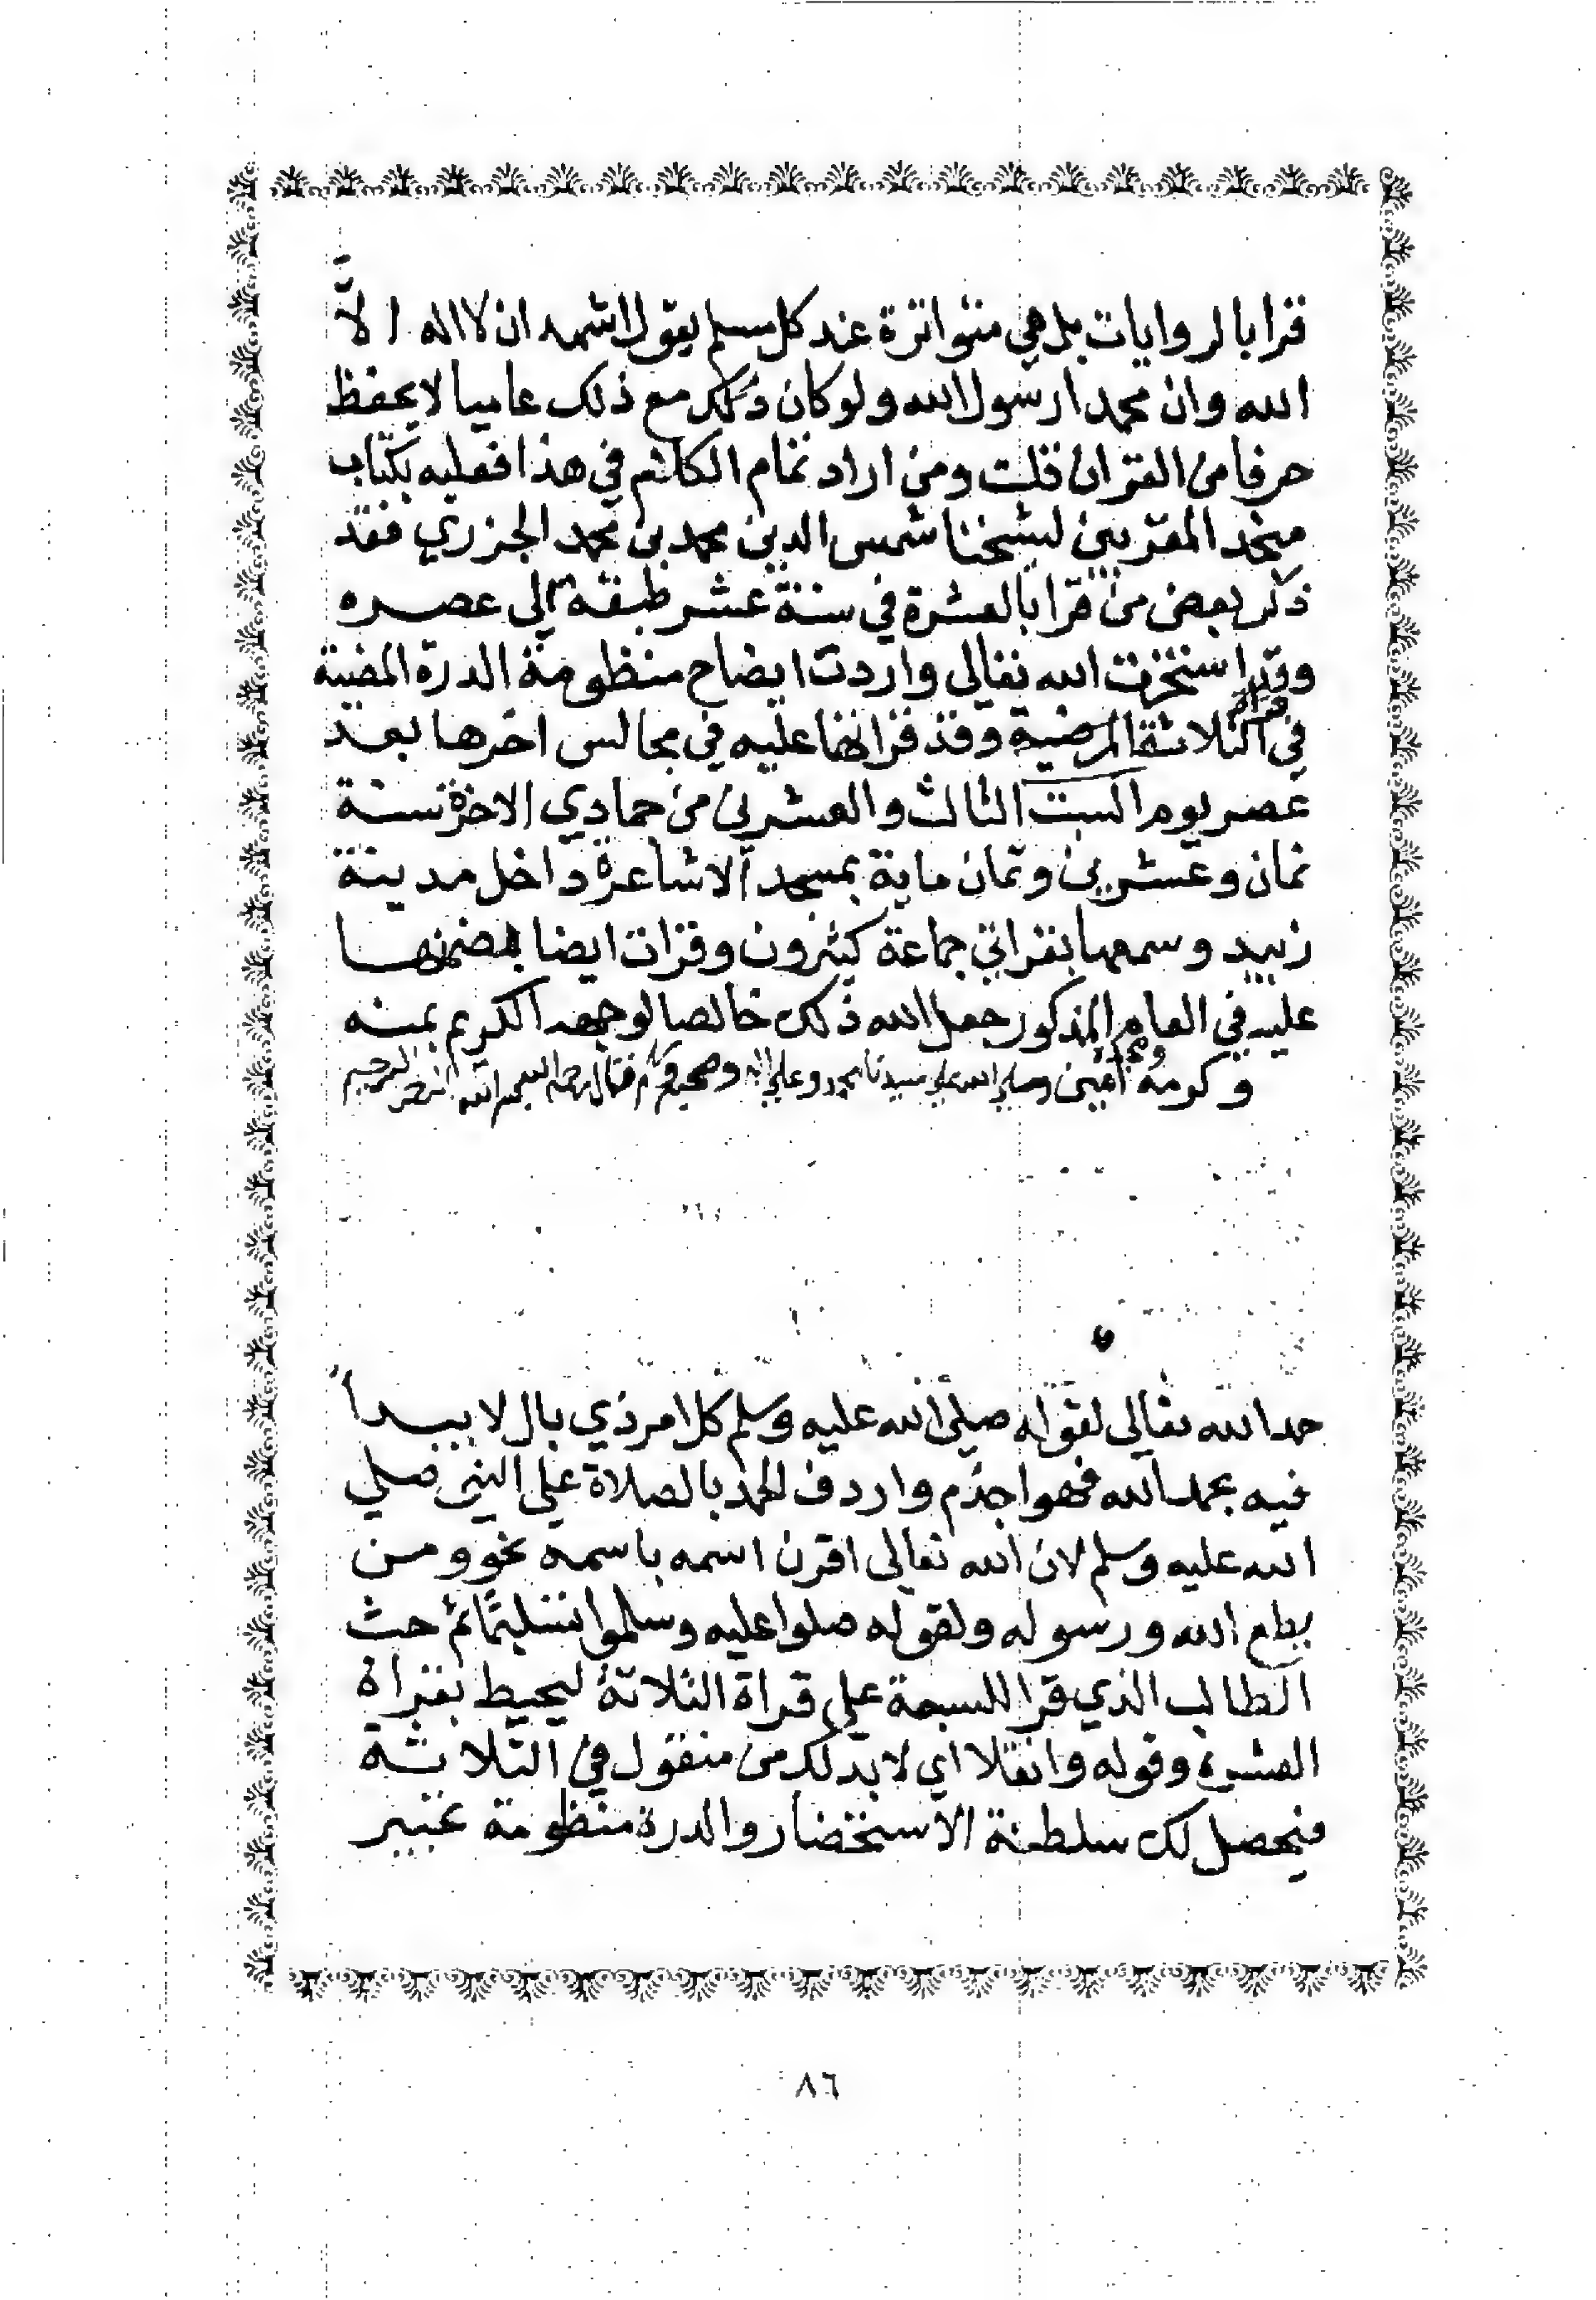 قرا بالروايات بل هي متواترة عند كل مسلم يقول اشهد ان لا اله الا
الله وان محمدا رسول الله ولو كان ذلك مع ذلك عاميا لا يحفظ
حرفا من القران قلت ومن اراد تمام الكلام في هذا فعليه بكتاب
منجد المقربين لشيخنا شمس الدين محمد بن محمد الجزري فقد
ذكر بعض من قرا بالعشرة في ستة عشر طبقة الى عصره
وقد استخرت الله تعالى واردت ايضاح منظومة الدرة المضية
في الثلاثة المرضية وقد قراتها عليه في مجالس اخرها بعد
عصر يوم السبت الثالث والعشرين من جمادي الاخرة سنة
ثمان وعشرين وثمان ماية بمسجد الاشاعرة داخل مدينة
زبيد وسمعها بقراتي جماعة كثيرون وقرات ايضا بمضمنها
عليه في العام المذكور جعل الله ذلك خالصا لوجهه الكريم بمنه
وكرمه امين وصلى الله على سيدنا محمد وعلى اله وصحبه وسلم فقال رحمه الله بسم الله الرحمن الرحيم
حمد الله تعالى لقوله صلى الله عليه وسلم كل امر ذي بال لا يبدا
فيه بحمد الله فهو اجذم واردف الحمد بالصلاة على النبي صلي
الله عليه وسلم لان الله تعالى اقرن اسمه باسمه نحو ومن
يطع الله ورسوله ولقوله صلوا عليه وسلموا تسليما ثم حث
الطالب الذي قرا للسبعة على قراة الثلاثة ليحيط بقراة
العشرة وقوله وانقلا اي لا بد لك من منقول في الثلاثة
فيحصل لك سلطنة الاستحضار والدرة منظومة غير
٨٦